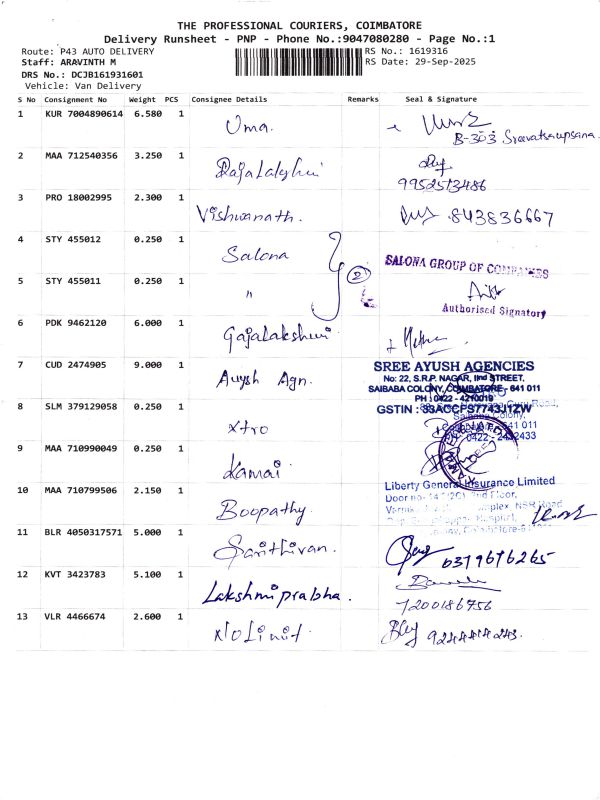 THE PROFESSIONAL COURIERS, COIMBATORE
Delivery Runsheet - PNP - Phone No.:9047080280 - Page No.:1
Route: P43 AUTO DELIVERY RS No.: 1619316
Staff: ARAVINTH M RS Date: 29-Sep-2025
DRS No.: DCJB161931601
Vehicle: Van Delivery
S No Consignment No Weight PCS Consignee Details Remarks Seal & Signature
1 KUR 7004890614 6.580 1 Uma.
B-303
2 MAA 712540356 3.250 1 Rajalakshmi
9952513486
3 PRO 18002995 2.300 1 Vishwanath. 843836667
4 STY 455012 0.250 1 Salona
SALONA GROUP OF COMPANIES
5 STY 455011 0.250 1 " 2
Authorised Signatory
6 PDK 9462120 6.000 1 Gajalakshmi.
7 CUD 2474905 9.000 1 Auysh Agn.
SREE AYUSH AGENCIES
No: 22, S.R.P. NAGAR, IInd STREET,
SAIBABA COLONY, COIMBATORE - 641 011
PH : 0422 - 4210019
GSTIN : 33ACCFS7743J1ZW
8 SLM 379129058 0.250 1 Xtro
Saibaba Colony,
641 011
0422 - 2432433
9 MAA 710990049 0.250 1 Kamai
10 MAA 710799506 2.150 1 Boopathy
Liberty General Insurance Limited
Door no 2nd Floor,
NSR Road
11 BLR 4050317571 5.000 1
12 KVT 3423783 5.100 1 Lakshmi prabha.
7200186756
13 VLR 4466674 2.600 1 No Limit.